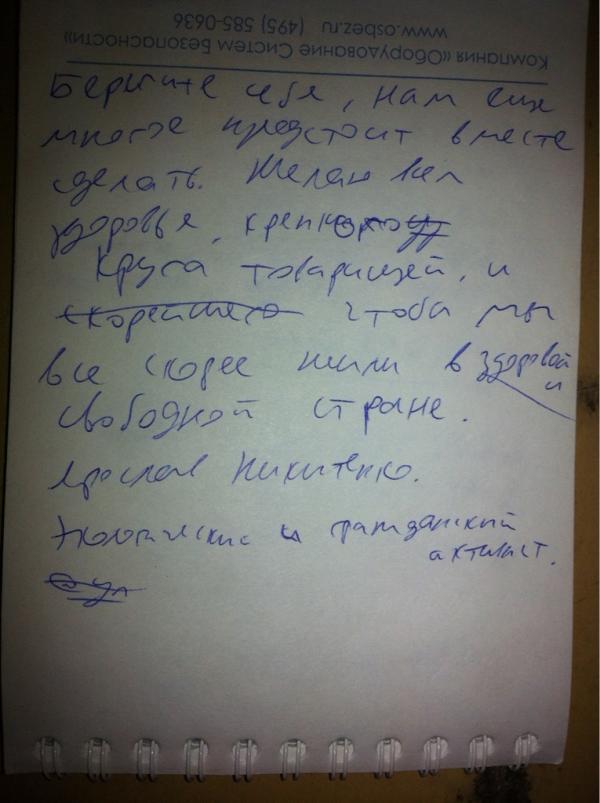 Компания «Оборудование Систем Безопасности»
www.osbez.ru (495) 585-0636
Берегите себя, нам ещё
многое предстоит вместе
сделать. Желаю вам
здоровья, крепкого
круга товарищей, и
скорейшего чтобы мы
все скорее жили в здоровой
и
свободной стране.
Ярослав Никитенко.
Экологический и гражданский
активист.